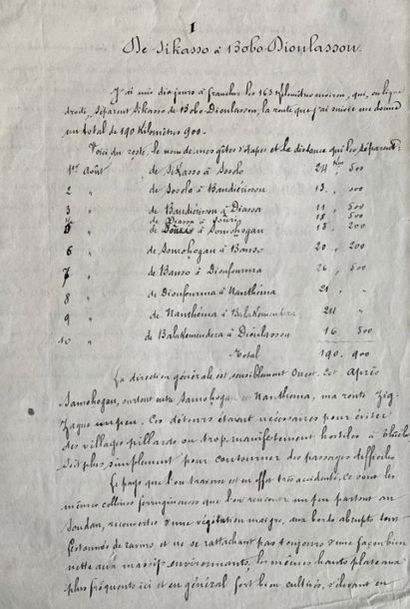 1
De Sikasso à Bobo-Dioulassou.
J'ai mis dix jours à franchir les 163 kilomètres environ, qui, en ligne
droite, séparent Sikasso de Bobo Dioulassou, la route que j'ai suivie me donne
un total de 190 kilomètres 900.
Voici du reste, le nom de mes gîtes d'étapes et la distance qui les séparent:
1er août de Sikasso à Sosolo 24 Km 500
2 " de Sosolo à Bandiérisou 13 " 000
3 " de Bandiérisou à Diassa 11 " 500
de Diassa à 18 " 500
5 " de à Samohogan 13 " 200
6 " de Samohogan à Banso 20 " 200
7 " de Banso à Dioufourma 26 " 500
8 " de Dioufourma à Nanthéma 21 "
9 " de Nanthéma à Balakemendera "
10 " de Balakemendera à Dioulassou 16 500
Total 190. 900
La direction générale est sensiblement Ouest-Est. Après
Samohogan, surtout entre Samohogan et Nanthema, ma route Zig
Zague un peu. Ces détours étaient nécessaires pour éviter
des villages pillards ou trop manifestement hostiles à
soit plus simplement pour contourner des passages difficiles
Le pays que l'on traverse est en effet très accidenté, ce sont les
mêmes collines ferrugineuses que l'on rencontre un peu partout au
Soudan, recouvertes d'une végétation maigre, aux bords abrupts tous
festonnés de ravins et ne se rattachant pas toujours d'une façon bien
nette aux massifs environnants. les mêmes hauts plateaux
plus fréquents ici et en général fort bien cultivés, s'élevant en